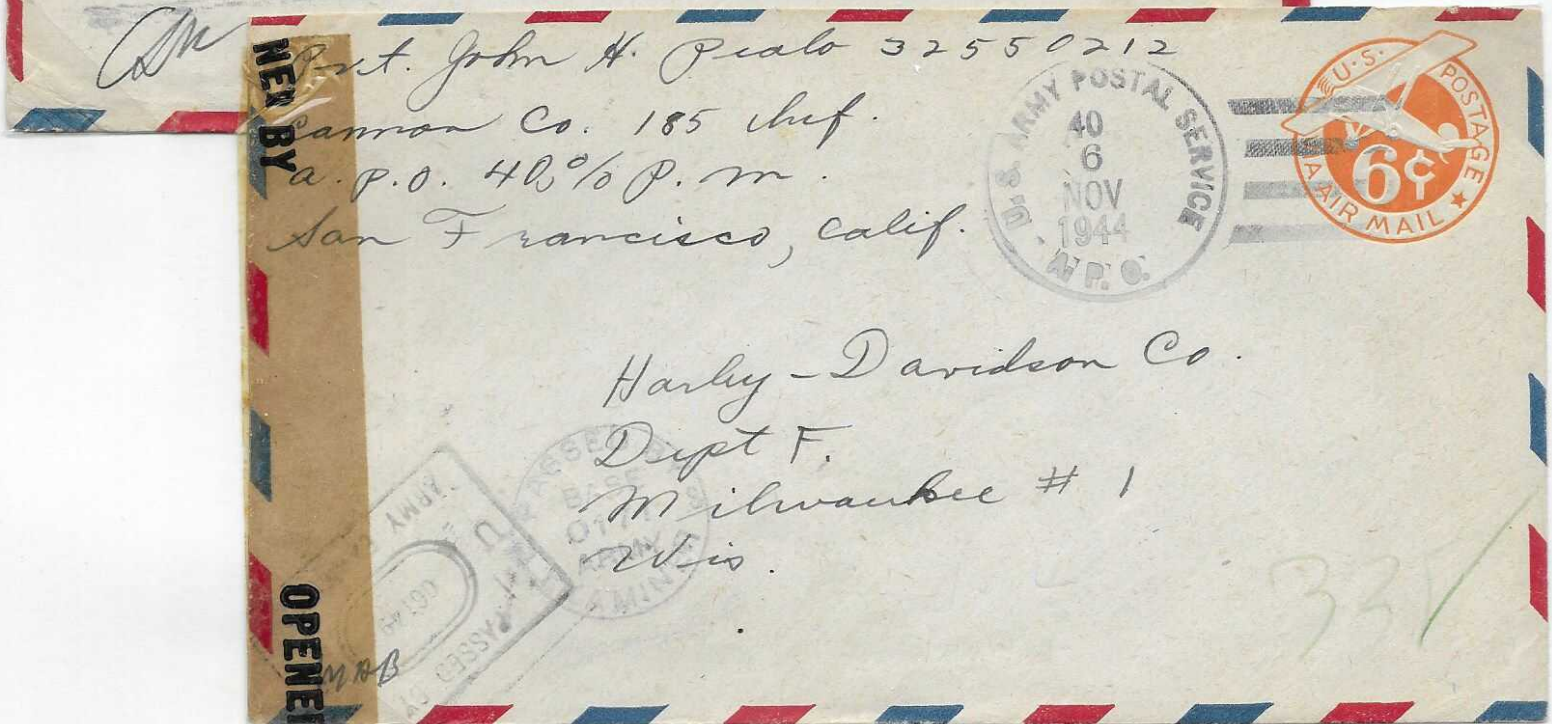 Pvt. John H. Pialo 32550212
Cannon Co. 185 Inf.
A.P.O. 40, % P.M.
San Francisco, Calif.
U.S. ARMY POSTAL SERVICE
40
6
NOV
1944
A.P.O.
U.S. POSTAGE
VIA AIR MAIL
6¢
NED BY
Harley-Davidson Co.
Dept F.
Milwaukee # 1
Wis.
PASSED BY
BASE
ARMY
EXAMINER
U.S.
PASSED BY
ARMY
OPENED
MAB
331